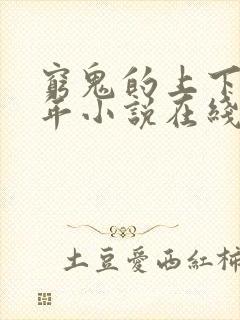 窮鬼的上下
年小說在綫
土豆愛西紅柿